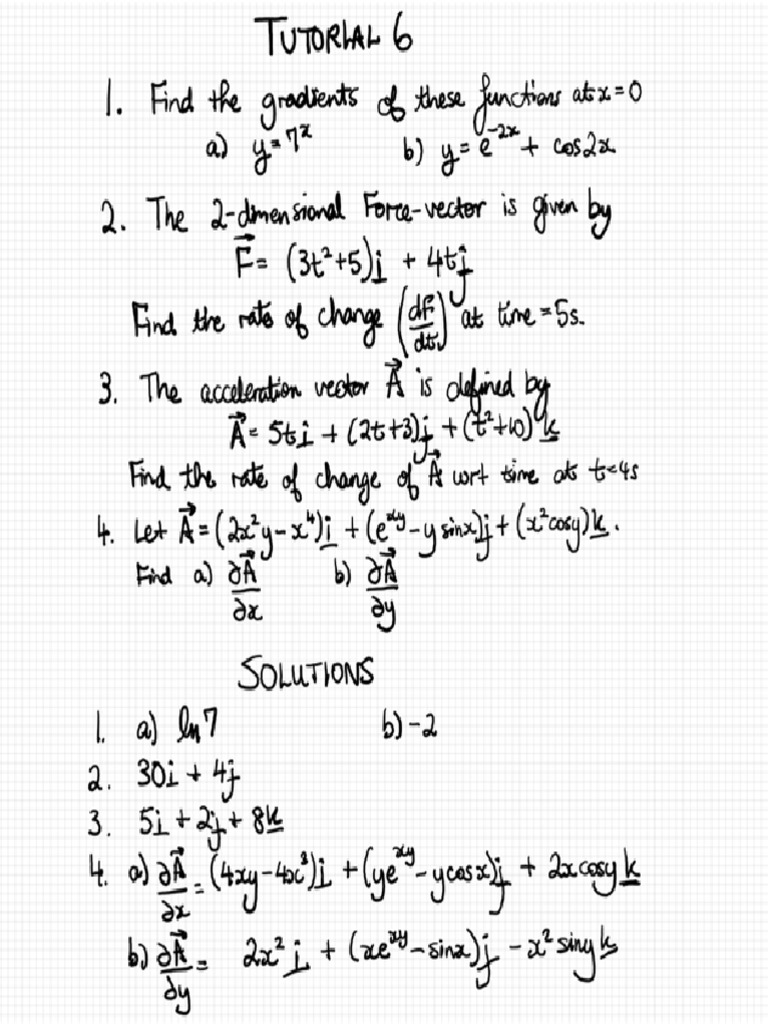 TUTORIAL 6
1. Find the gradients of these functions at x=0
a) y=7ˣ b) y=e⁻²ˣ + cos2x
2. The 2-dimensional Force-vector is given by
F⃗= (3t²+5)i̲ + 4tj̲
Find the rate of change (dF/dt) at time=5s.
3. The acceleration vector A⃗ is defined by
A⃗= 5ti̲ + (2t+3)j̲ + (t²+10)k̲
Find the rate of change of A⃗ wrt time at t=4s
4. Let A⃗=(2x²y-x⁴)i̲ + (e^{xy}-y sinx)j̲ + (x²cosy)k̲.
Find a) ∂A⃗/∂x b) ∂A⃗/∂y
SOLUTIONS
1. a) ln7 b) -2
2. 30i̲ + 4j̲
3. 5i̲ + 2j̲ + 8k̲
4. a) ∂A⃗/∂x = (4xy-4x³)i̲ + (ye^{xy}-ycosx)j̲ + 2xcosy k̲
b) ∂A⃗/∂y = 2x² i̲ + (xe^{xy}-sinx)j̲ - x² siny k̲